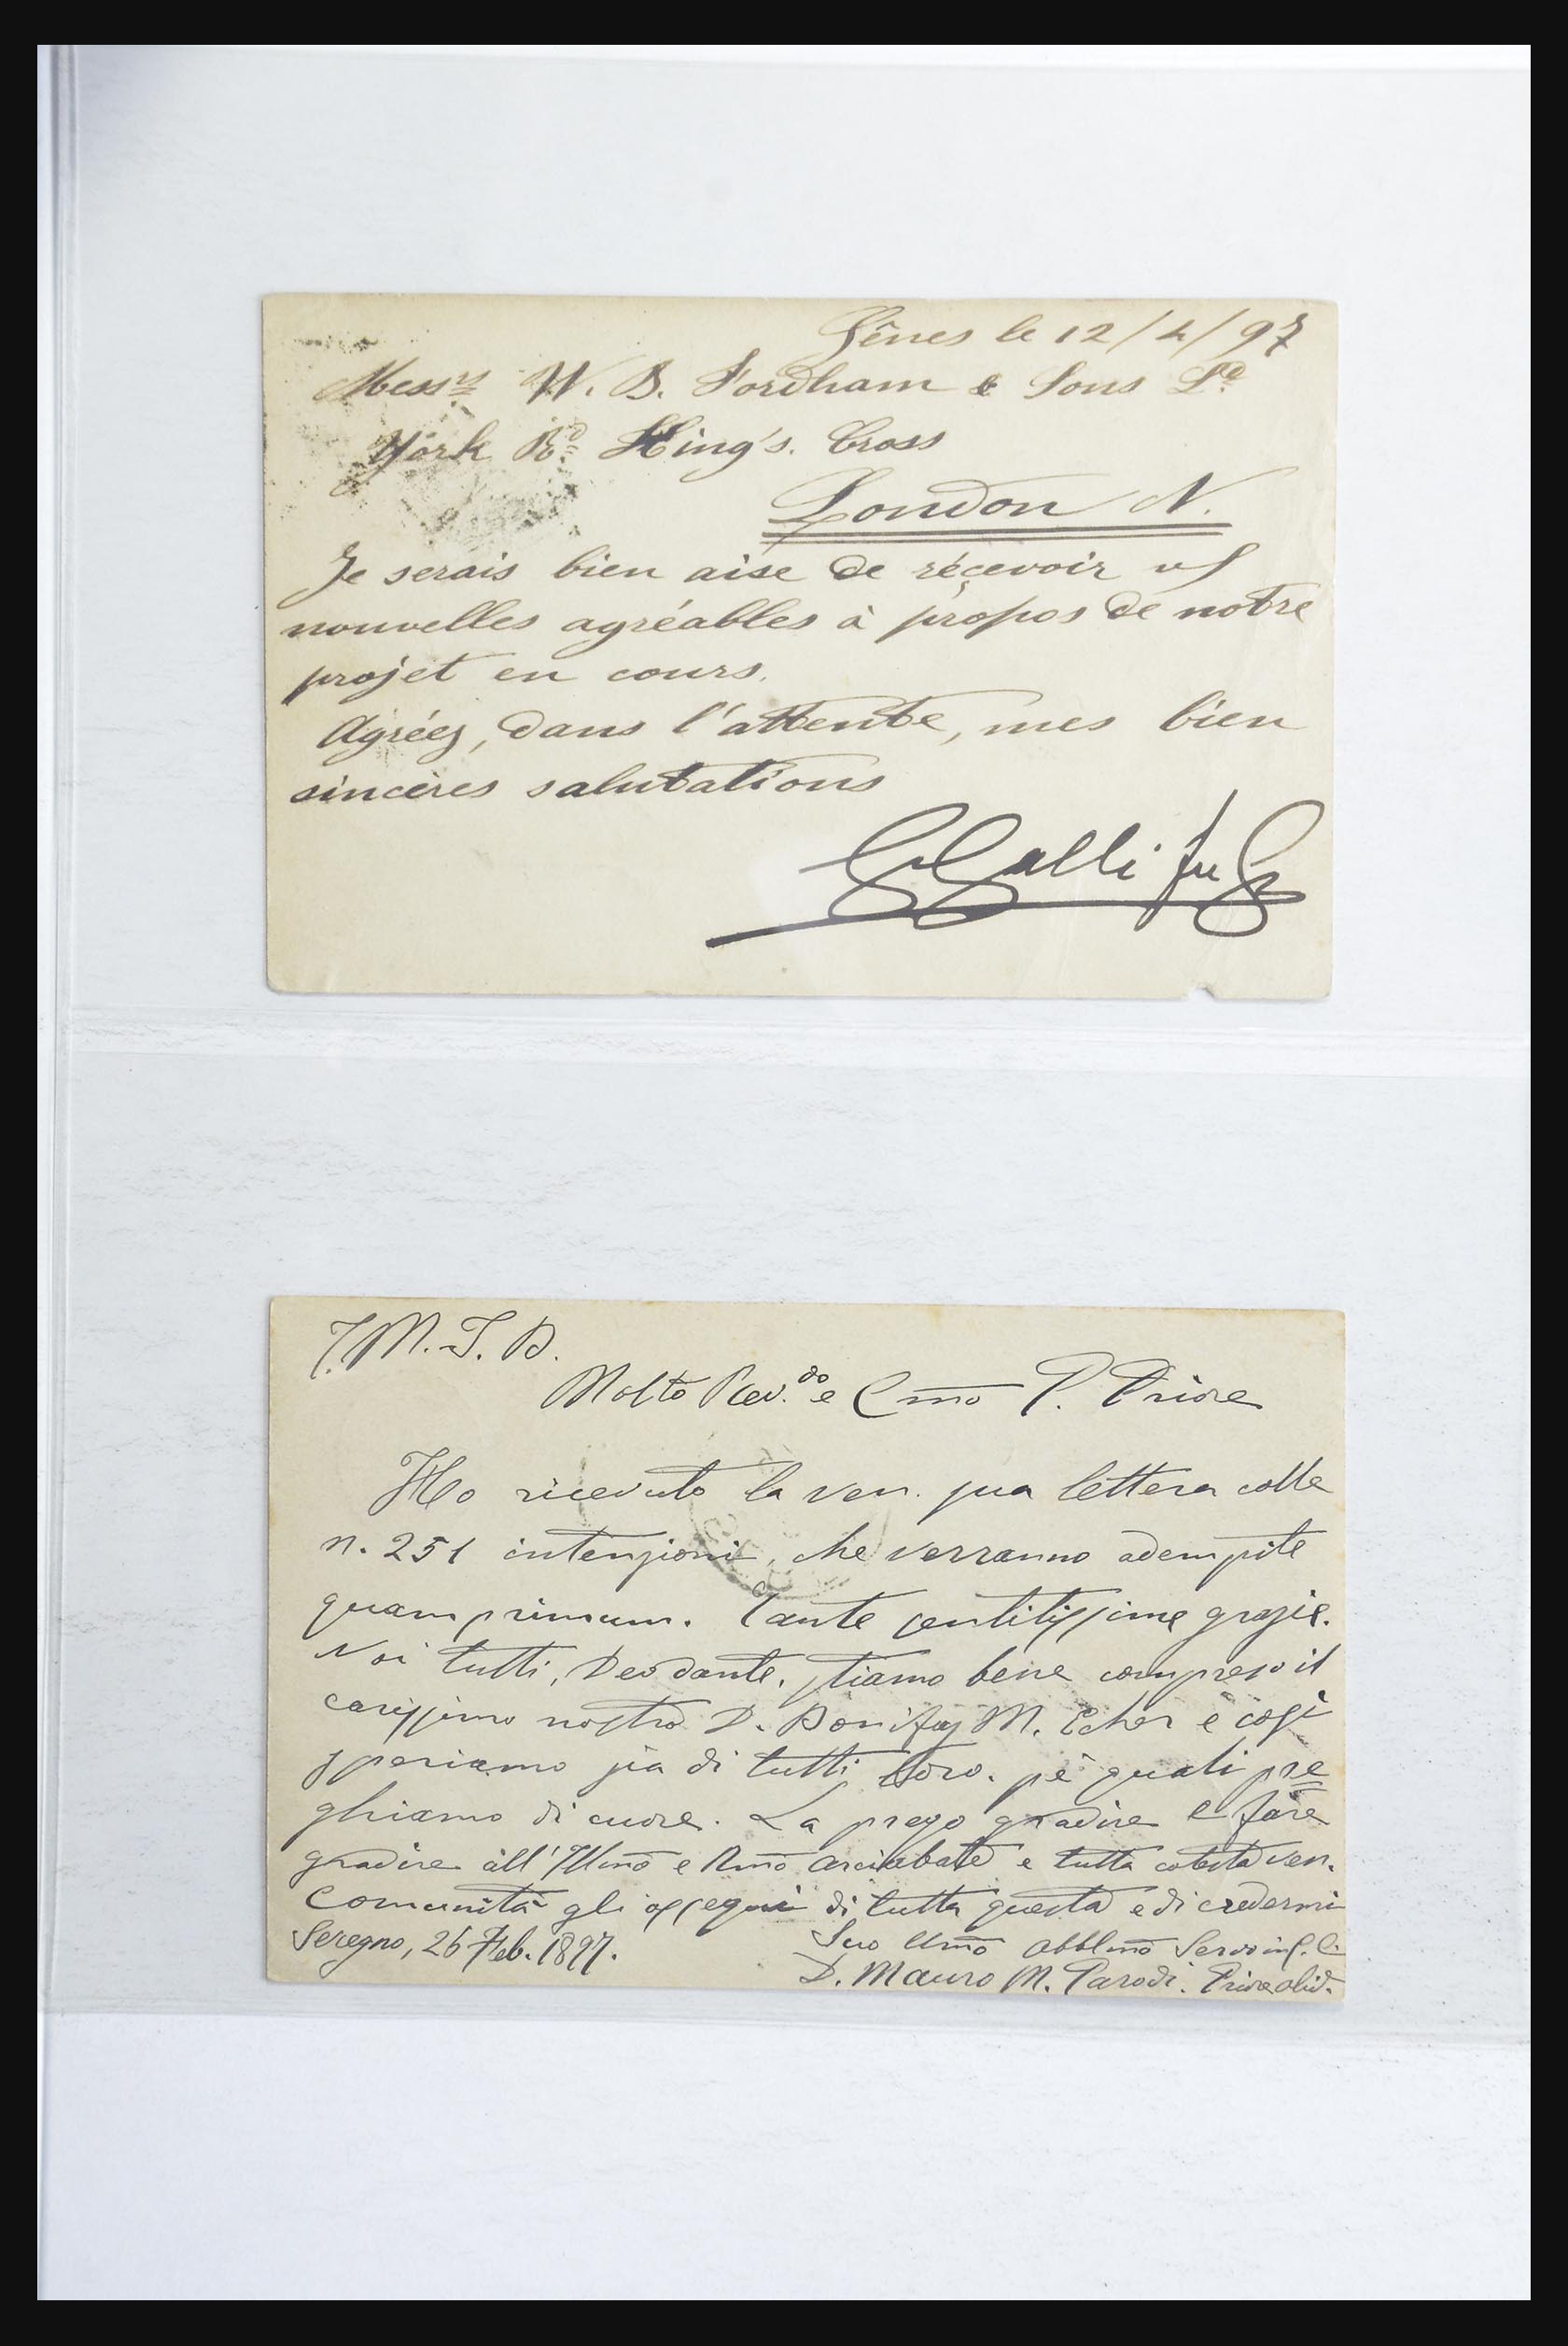 Gênes le 12/4/97
Messrs W. B. Fordham & Sons Ld
York Rd King's Cross
London N.
Je serais bien aise de récevoir vs
nouvelles agréables à propos de notre
projet en cours.
Agréez, dans l'attente, mes bien
sincères salutations
Galli fu G
J. M. J. B.
Molto Rev.do e C mo P. Priore
Ho ricevuto la ven. sua lettera colle
n. 251 intenzioni, che verranno adempite
quamprimum. Tante sentitissime grazie.
Noi tutti, Deo dante, stiamo bene compreso il
carissimo nostro D. Bonifaz M. e così
speriamo sia di tutti loro. pei quali pre=
ghiamo di cuore. La prego gradire e fare
gradire all'Illmo e Rmo Arciabate e tutta cotesta ven.
Comunità gli ossequi di tutta questa e di credermi
Seregno, 26 Feb. 1897.
Suo Umo Obblmo Servo in C.
D. Mauro M. Parodi. Priore Oliv.